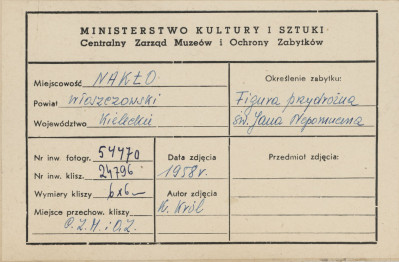 MINISTERSTWO KULTURY I SZTUKI
Centralny Zarząd Muzeów i Ochrony Zabytków
Miejscowość NAKŁO
Powiat włoszczowski
Województwo Kieleckie
Określenie zabytku:
Figura przydrożna
św. Jana Nepomucena
Nr inw. fotogr. 54470
Nr inw. klisz. 24796
Wymiary kliszy 6x6
Miejsce przechow. kliszy
C.Z.M. i O.Z.
Data zdjęcia
1958 r.
Autor zdjęcia
K. Król
Przedmiot zdjęcia: